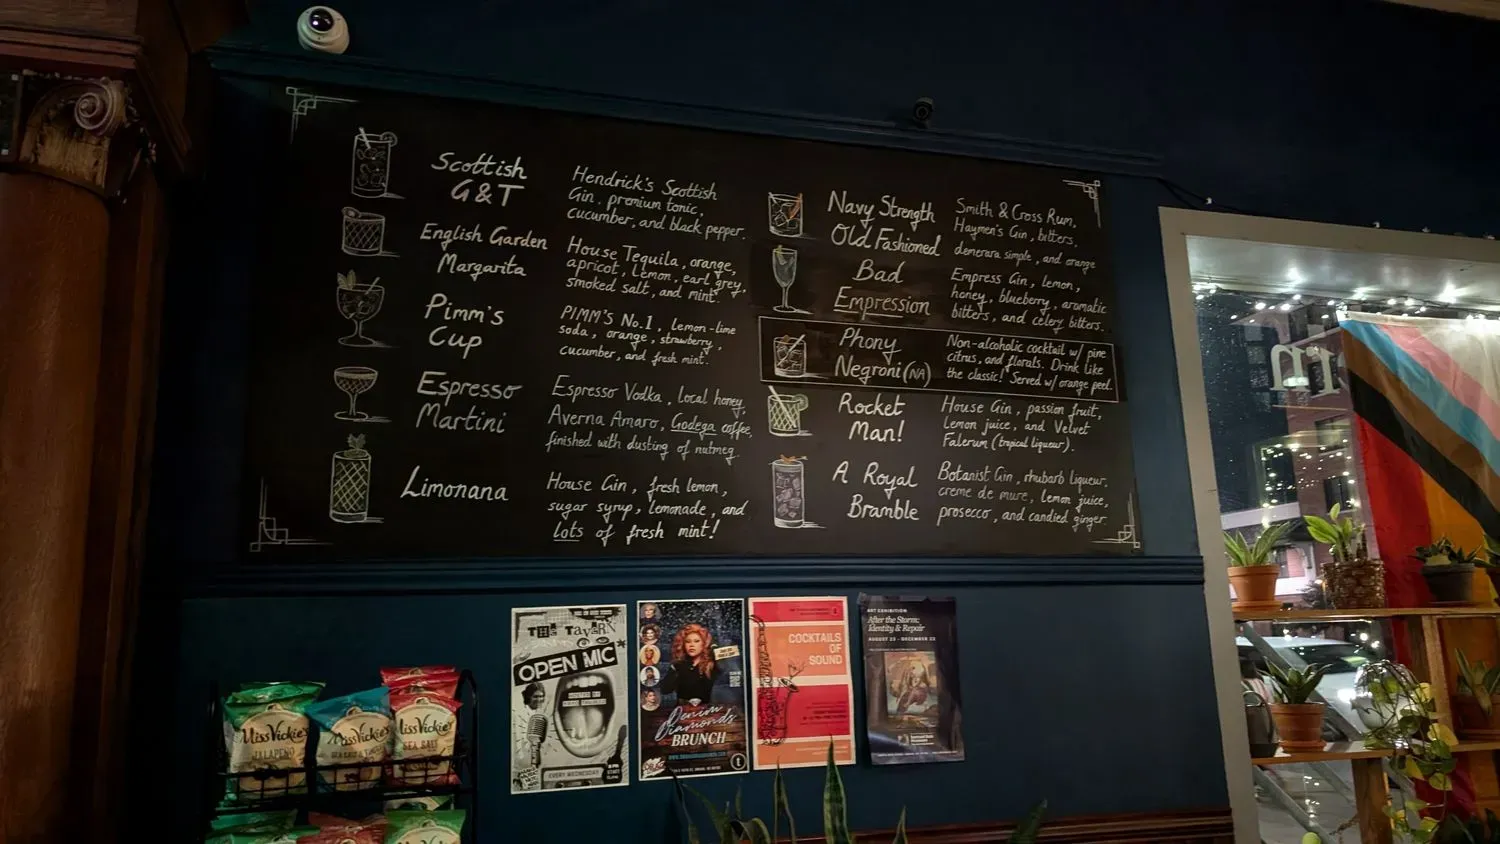 Scottish
G&T
Hendrick's Scottish
Gin, premium tonic,
cucumber, and black pepper.
English Garden
Margarita
House Tequila, orange,
apricot, lemon, earl grey,
smoked salt, and mint.
Pimm's
Cup
PIMM'S No.1, lemon-lime
soda, orange, strawberry,
cucumber, and fresh mint.
Espresso
Martini
Espresso Vodka, local honey,
Averna Amaro, Godega coffee,
finished with dusting of nutmeg.
Limonana
House Gin, fresh lemon,
sugar syrup, lemonade, and
lots of fresh mint!
Navy Strength
Old Fashioned
Smith & Cross Rum,
Haymen's Gin, bitters,
demerara simple, and orange
Bad
Empression
Empress Gin, lemon,
honey, blueberry, aromatic
bitters, and celery bitters.
Phony
Negroni (NA)
Non-alcoholic cocktail w/ pine
citrus, and florals. Drink like
the classic! Served w/ orange peel.
Rocket
Man!
House Gin, passion fruit,
Lemon juice, and Velvet
Falerum (tropical liqueur).
A Royal
Bramble
Botanist Gin, rhubarb liqueur,
creme de mure, lemon juice,
prosecco, and candied ginger.
THE TAVERN
OPEN MIC
EVERY WEDNESDAY
Denim
Diamonds
BRUNCH
COCKTAILS
OF
SOUND
ART EXHIBITION
After the Storm:
Identity & Repair
AUGUST 23 - DECEMBER 22
Miss Vickie's
JALAPEÑO
Miss Vickie's
Miss Vickie's
SEA SALT
Miss Vickie's